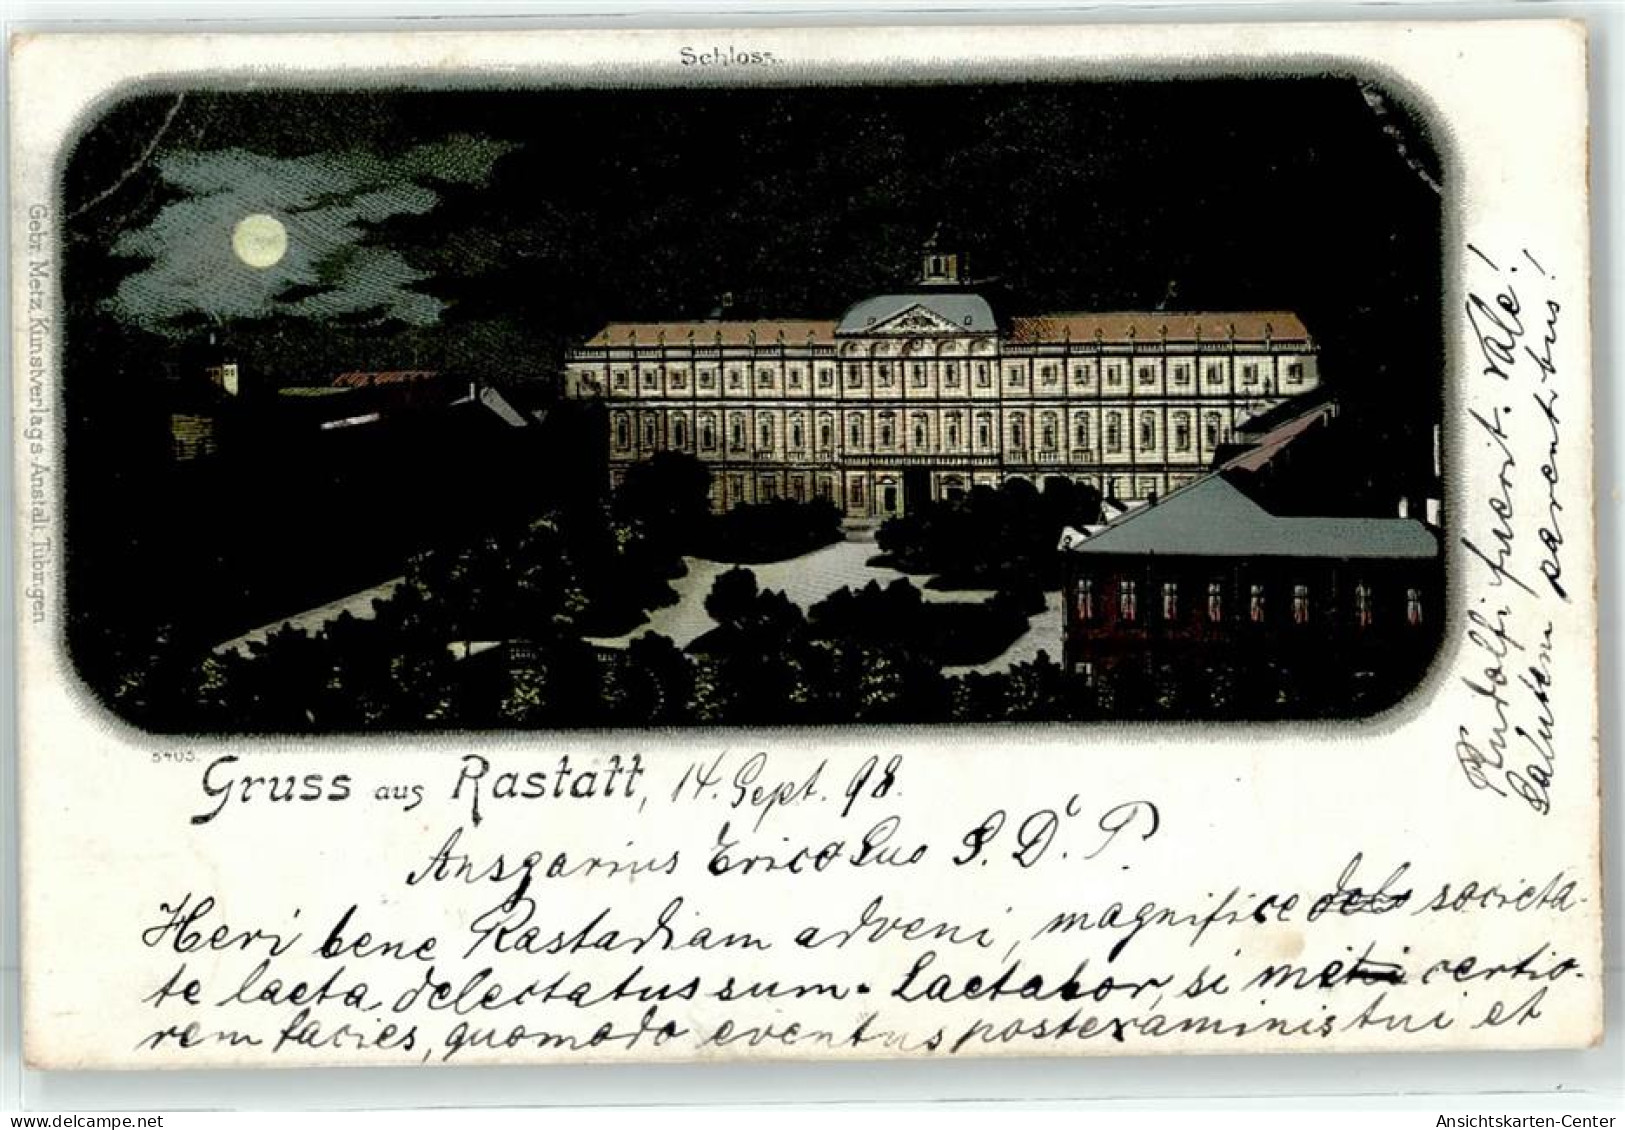 Schloss.
Gebr. Metz, Kunstverlags-Anstalt, Tübingen.
5403.
Gruss aus Rastatt, 14. Sept. 98.
Ansgarius Erico Suo S. D. P.
Heri bene Rastadiam adveni, magnifice societa-
te laeta delectatus sum. Laetabor, si me certio-
rem facies, quomodo eventus post examinis tui et
Rudolfi fuerit. Vale!
Salutem parentibus!
Ansichtskarten-Center